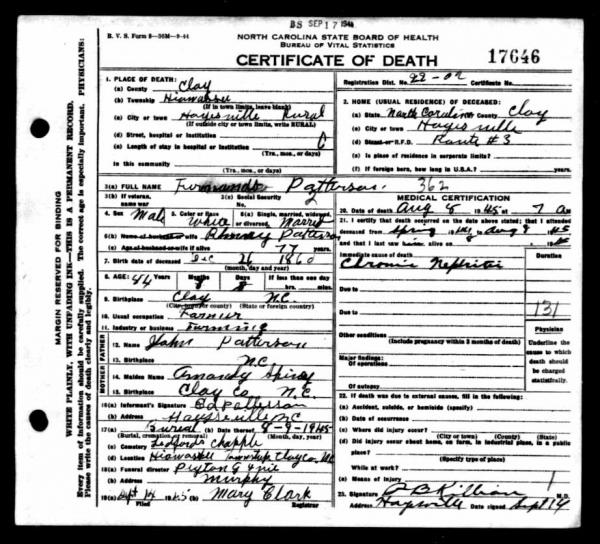 BS SEP 17 194
B. V. S. Form 8—36M—9-44
NORTH CAROLINA STATE BOARD OF HEALTH
BUREAU OF VITAL STATISTICS
CERTIFICATE OF DEATH
17646
Registration Dist. No. 22-02 Certificate No.
MARGIN RESERVED FOR BINDING
WRITE PLAINLY, WITH UNFADING INK—THIS IS A PERMANENT RECORD.
Every item of information should be carefully supplied. The correct age is especially important. PHYSICIANS:
Please write the causes of death clearly and legibly.
1. PLACE OF DEATH:
(a) County Clay
(b) Township Hiawassee
(If in town limits, leave blank)
(c) City or town Hayesville Rural
(If outside city or town limits, write RURAL)
(d) Street, hospital or institution
(e) Length of stay in hospital or institution
(Yrs., mo., or days)
In this community
(Yrs., mo., or days)
2. HOME (USUAL RESIDENCE) OF DECEASED:
(a) State North Carolina (b) County Clay
(c) City or town Hayesville
(d) Street or R.F.D. Route #3
(e) Is place of residence in corporate limits?
(f) If foreign born, how long in U.S.A.?
3(a) FULL NAME Patterson 362
3(b) If veteran, name war
3(c) Social Security
4. Sex Male 5. Color or Race White 6(a) Single, married, widowed, Marry
6(b) Patterson
6(c) Age of husband or wife if alive 77 years
7. Birth date of deceased Dec 26 1860
(month, day and year)
8. AGE: 84 Months 8 Days If less than one day
hrs. min.
9. Birthplace Clay N.C.
(State or foreign country)
10. Usual occupation Farmer
11. Industry or business Farming
FATHER
12. Name John Patterson
13. Birthplace N.C.
MOTHER
14. Maiden Name
15. Birthplace Clay Co N.C.
16(a) Informant's Signature Ed Patterson
(b) Address Hayesville NC
17(a) Burial (b) Date thereof 8-9-1945
(Burial, cremation or removal) (Month, day, year)
(c) Cemetery Ledfords Chapple
(d) Location Hiawassee Township Clay Co. NC
18(a) Funeral director Peyton G Ivie
(b) Address Murphy
19(a) Sept 14 1945 Mary Clark
Filed Registrar
MEDICAL CERTIFICATION
20. Date of death Aug 8 1945 7 a m
21. I certify that death occurred on the date above stated; that I attended
deceased from Spring 1945 to Aug 8 1945
and that I last saw him alive on 19
Immediate cause of death
Duration
Chronic Nephritis
Due to
131
Due to
Other conditions
(Include pregnancy within 3 months of death)
Major findings:
Of operations
Of autopsy
Physician
Underline the cause to which death should be charged statistically.
22. If death was due to external causes, fill in the following:
(a) Accident, suicide, or homicide (specify)
(b) Date of occurrence
(c) Where did injury occur?
(City or town) (County) (State)
(d) Did injury occur about home, on farm, in industrial place, in a public
place?
(Specify type of place)
While at work?
(e) Means of injury
23. Signature Killian M.D.
Hayesville Date signed Sept 14